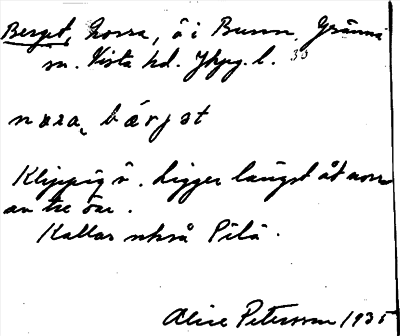 Berget, Norra, ö i Bunn, Gränna
sn. Vista hd. Jkpg. l. 33
nara, bärjət
Klippig ö. Ligger längst åt norr
av tre öar.
Kallas också Pilö.
Alice Petersson 1935